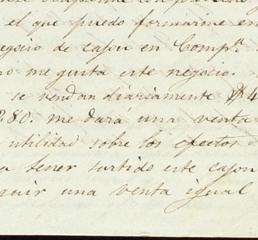 el que puedo formarme en
egocio de cajon en Comp.ª
no me gusta este negocio.
se vendan diariamente $4
280. me dara una venta
utilidad sobre los efectos
a tener surtido este cajon
guir una venta igual